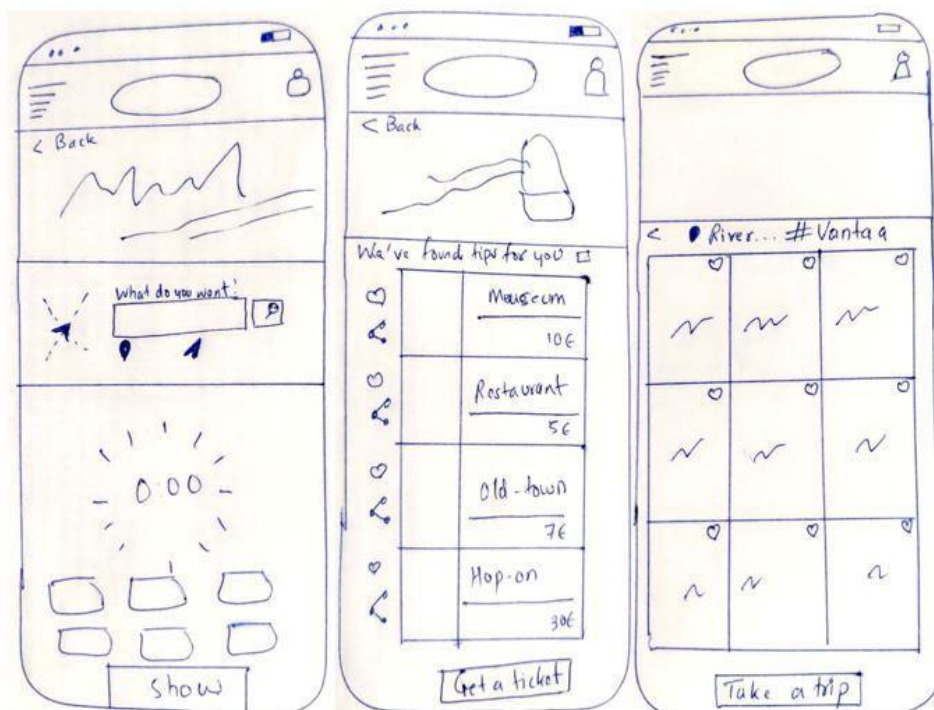 < Back
What do you want?
0:00
Show
< Back
We've found tips for you
Mouseum
10€
Restaurant
5€
Old-town
7€
Hop-on
30€
Get a ticket
< River... #Vantaa
Take a trip